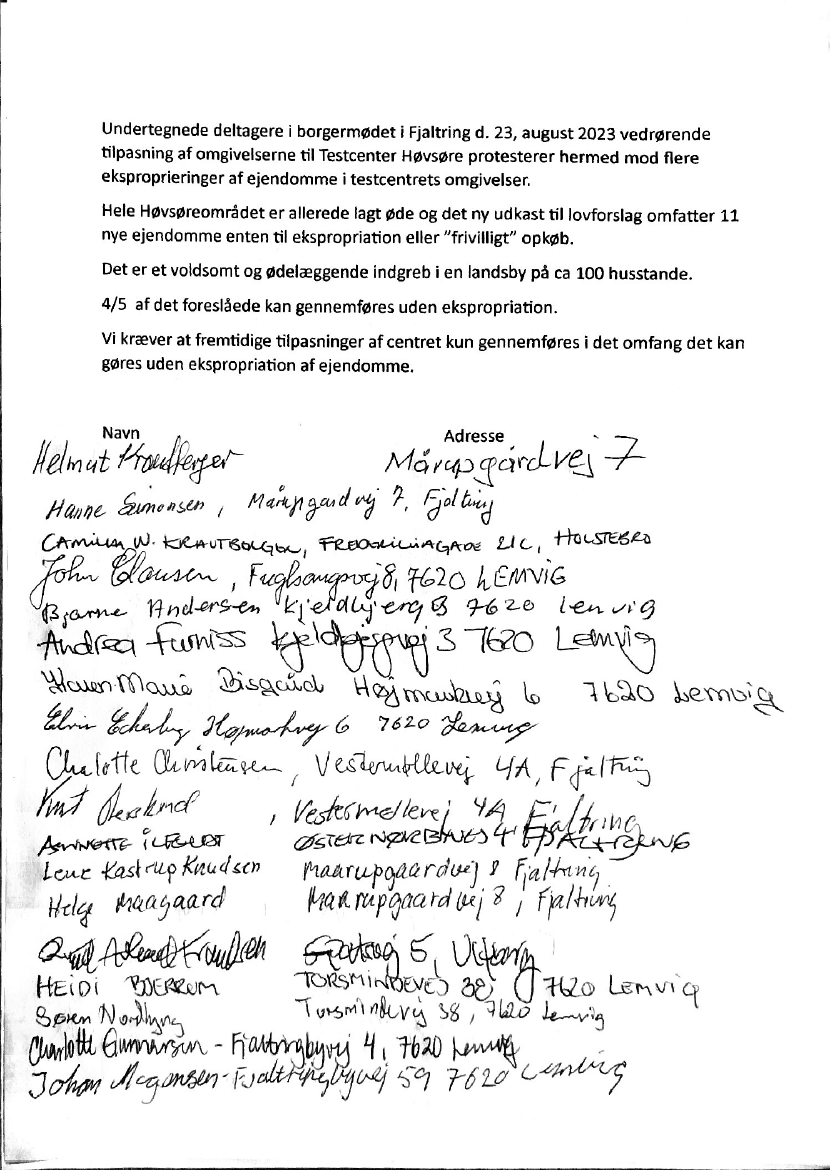 Undertegnede deltagere i borgermødet i Fjaltring d. 23, august 2023 vedrørende
tilpasning af omgivelserne til Testcenter Høvsøre protesterer hermed mod flere
eksproprieringer af ejendomme i testcentrets omgivelser.
Hele Høvsøreområdet er allerede lagt øde og det ny udkast til lovforslag omfatter 11
nye ejendomme enten til ekspropriation eller ”frivilligt” opkøb.
Det er et voldsomt og ødelæggende indgreb i en landsby på ca 100 husstande.
4/5 af det foreslåede kan gennemføres uden ekspropriation.
Vi kræver at fremtidige tilpasninger af centret kun gennemføres i det omfang det kan
gøres uden ekspropriation af ejendomme.
Navn Adresse
Helmut Mårupgårdvej 7
Hanne Simonsen, Mårupgardvej 7, Fjaltring
CAMILLA W. , HOLSTEBRO
John Clausen, Fuglsangsvej 8, 7620 LEMVIG
Bjarne Andersen 7620 Lemvig
Andrea Furniss 3 7620 Lemvig
Karen Marie Bisgård 6 7620 Lemvig
6 7620 Lemvig
Charlotte Christensen, Vestermøllevej 4A, Fjaltring
, Vestermøllevej 4A Fjaltring
ANNETTE FJALTRING
Lene Kastrup Knudsen Maarupgaardvej 8 Fjaltring
Helge Maagaard Maarupgaardvej 8, Fjaltring
5,
HEIDI BJERRUM TORSMINDEVEJ 38, 7620 LEMVIG
Søren Torsmindevej 38, 7620 Lemvig
Charlotte Gunnarsen - Fjaltringbyvej 4, 7620 Lemvig
Johan Mogensen - Fjaltringbyvej 59 7620 Lemvig